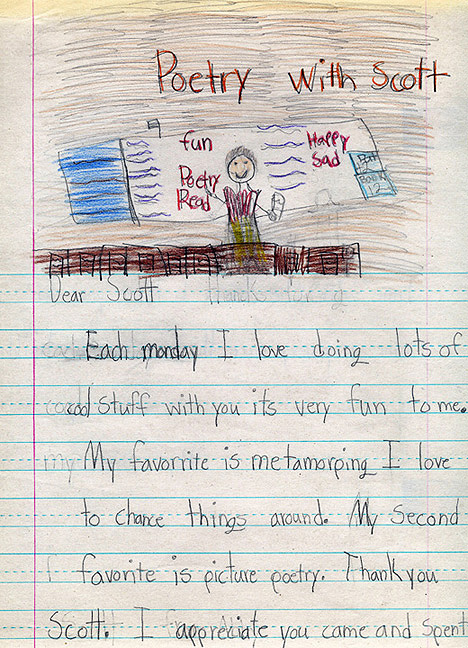 Poetry with Scott
fun
Happy
Sad
Poetry
Read
Dear Scott
Each monday I love doing lots of
cool Stuff with you its very fun to me.
My favorrite is metamorping I love
to chance things around. My Second
favorite is picture poetry. Thank you
Scott. I appreciate you came and spent